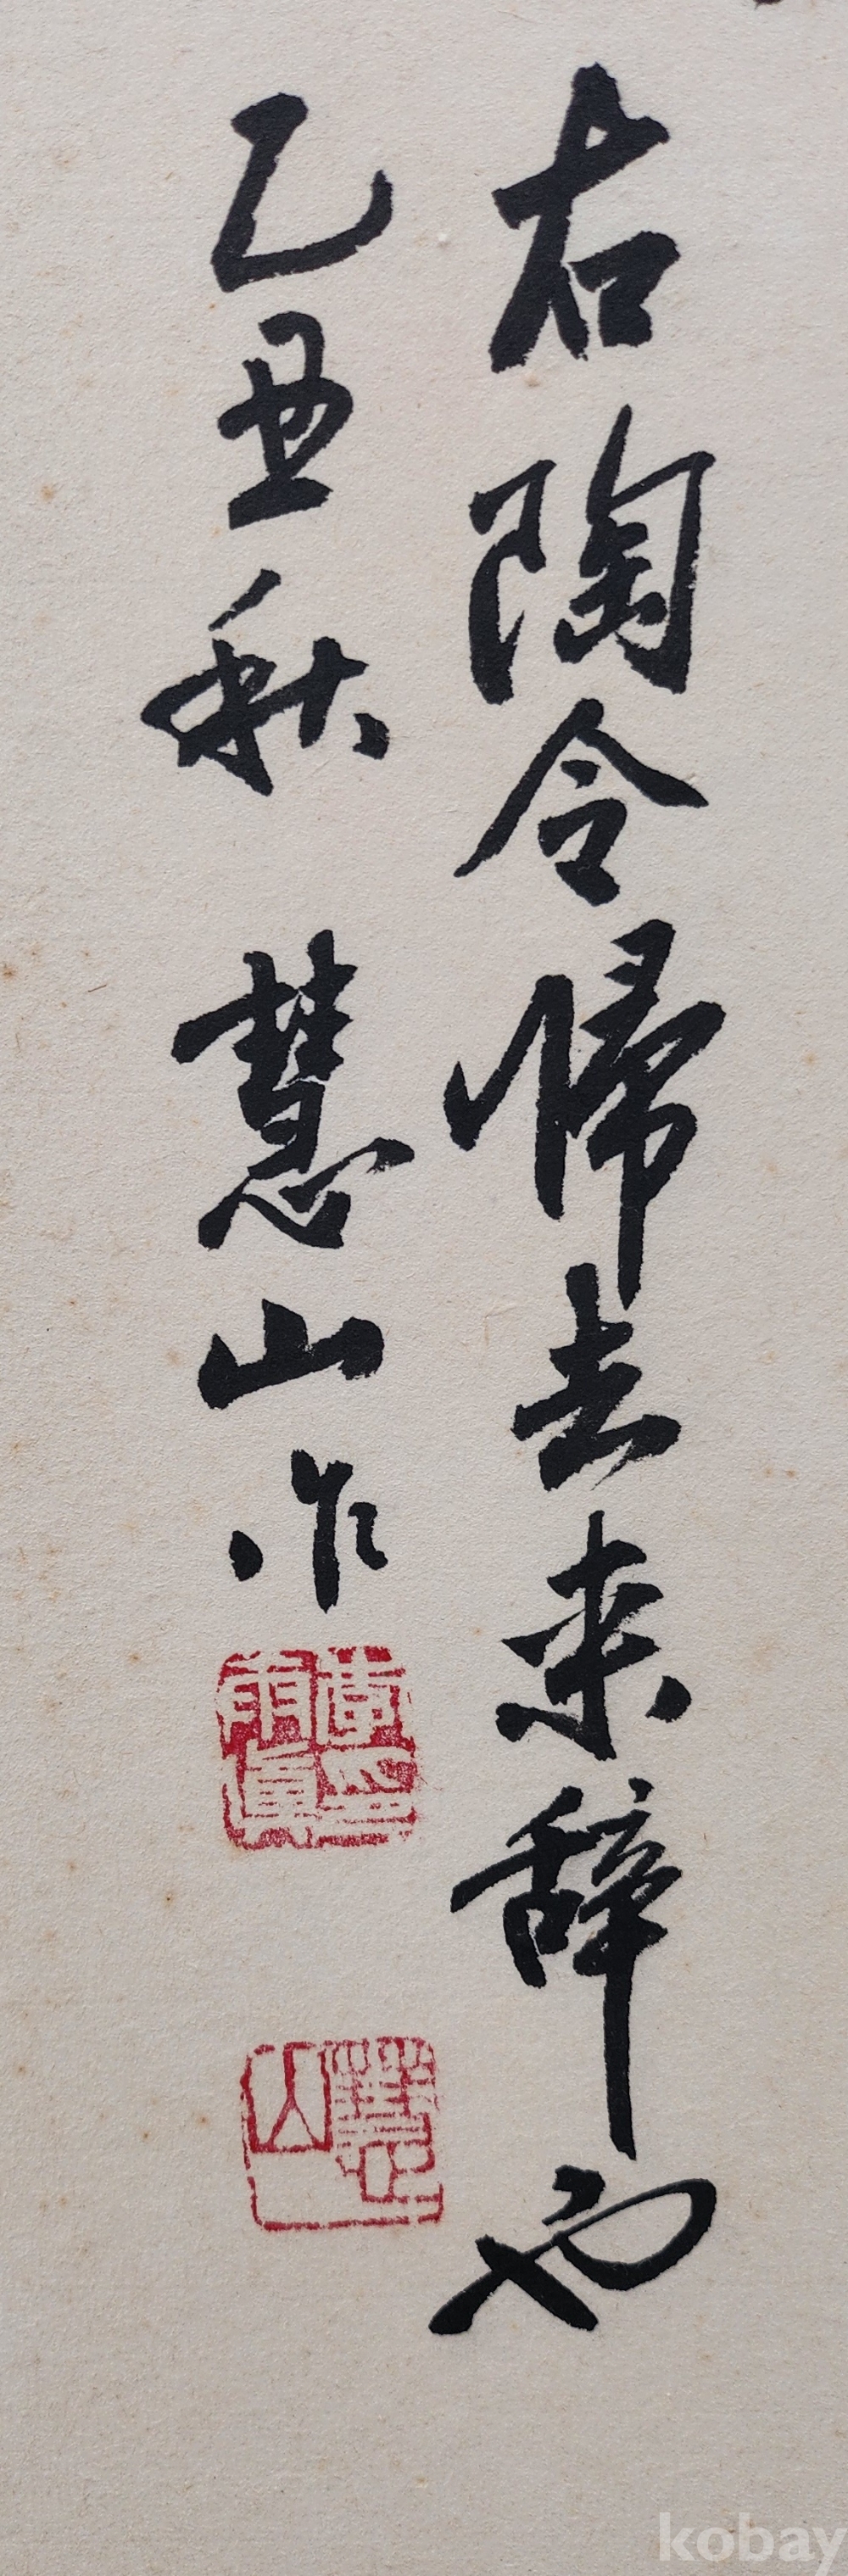 右陶令歸去来辞也
乙丑秋 慧山作
慧山
kobay